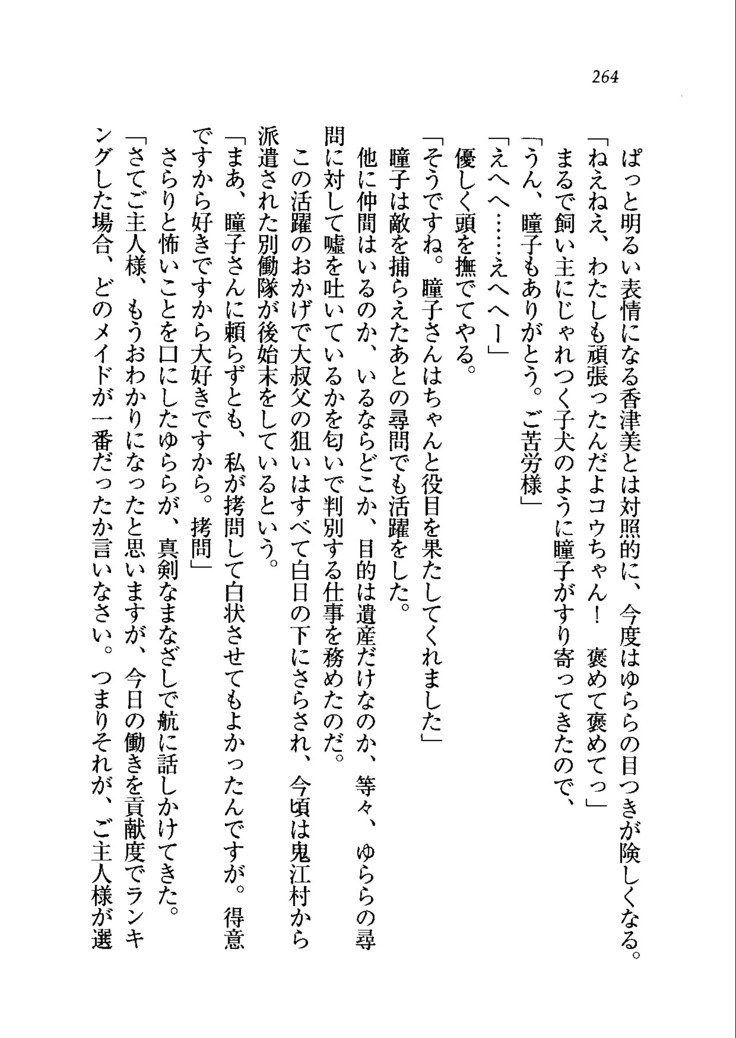 264
ぱっと明るい表情になる香津美とは対照的に、今度はゆららの目つきが険しくなる。
「ねえねえ、わたしも頑張ったんだよコウちゃん！　褒めて褒めてっ」
まるで飼い主にじゃれつく子犬のように瞳子がすり寄ってきたので、
「うん、瞳子もありがとう。ご苦労様」
「えへへ……えへへー」
優しく頭を撫でてやる。
「そうですね。瞳子さんはちゃんと役目を果たしてくれました」
瞳子は敵を捕らえたあとの尋問でも活躍をした。
他に仲間はいるのか、いるならどこか、目的は遺産だけなのか、等々、ゆららの尋
問に対して嘘を吐いているかを匂いで判別する仕事を務めたのだ。
この活躍のおかげで大叔父の狙いはすべて白日の下にさらされ、今頃は鬼江村から
派遣された別働隊が後始末をしているという。
「まあ、瞳子さんに頼らずとも、私が拷問して白状させてもよかったんですが。得意
ですから好きですから大好きですから。拷問」
さらりと怖いことを口にしたゆららが、真剣なまなざしで航に話しかけてきた。
「さてご主人様、もうおわかりになったと思いますが、今日の働きを貢献度でランキ
ングした場合、どのメイドが一番だったか言いなさい。つまりそれが、ご主人様が選